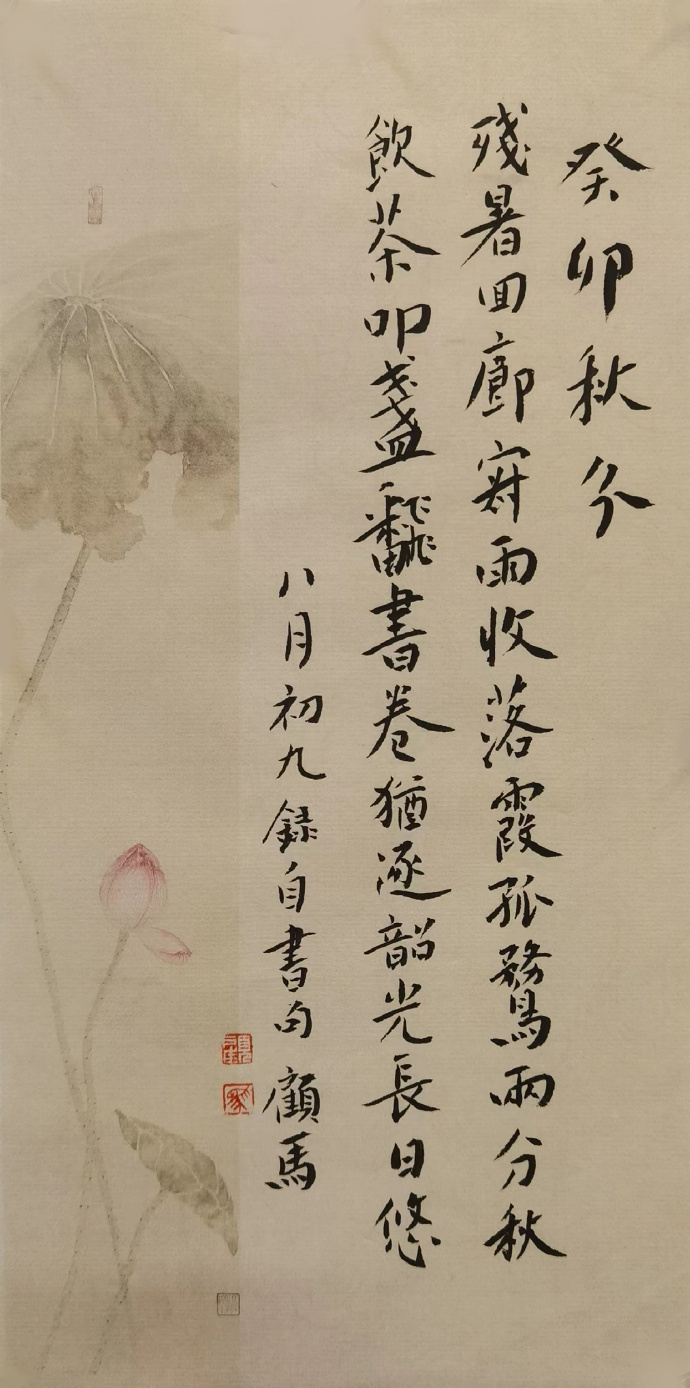 癸卯秋分
殘暑回廊宥雨收落霞孤鶩兩分秋
飲茶叩盞飜書卷猶逐韶光長日悠
八月初九錄自書句顧馬